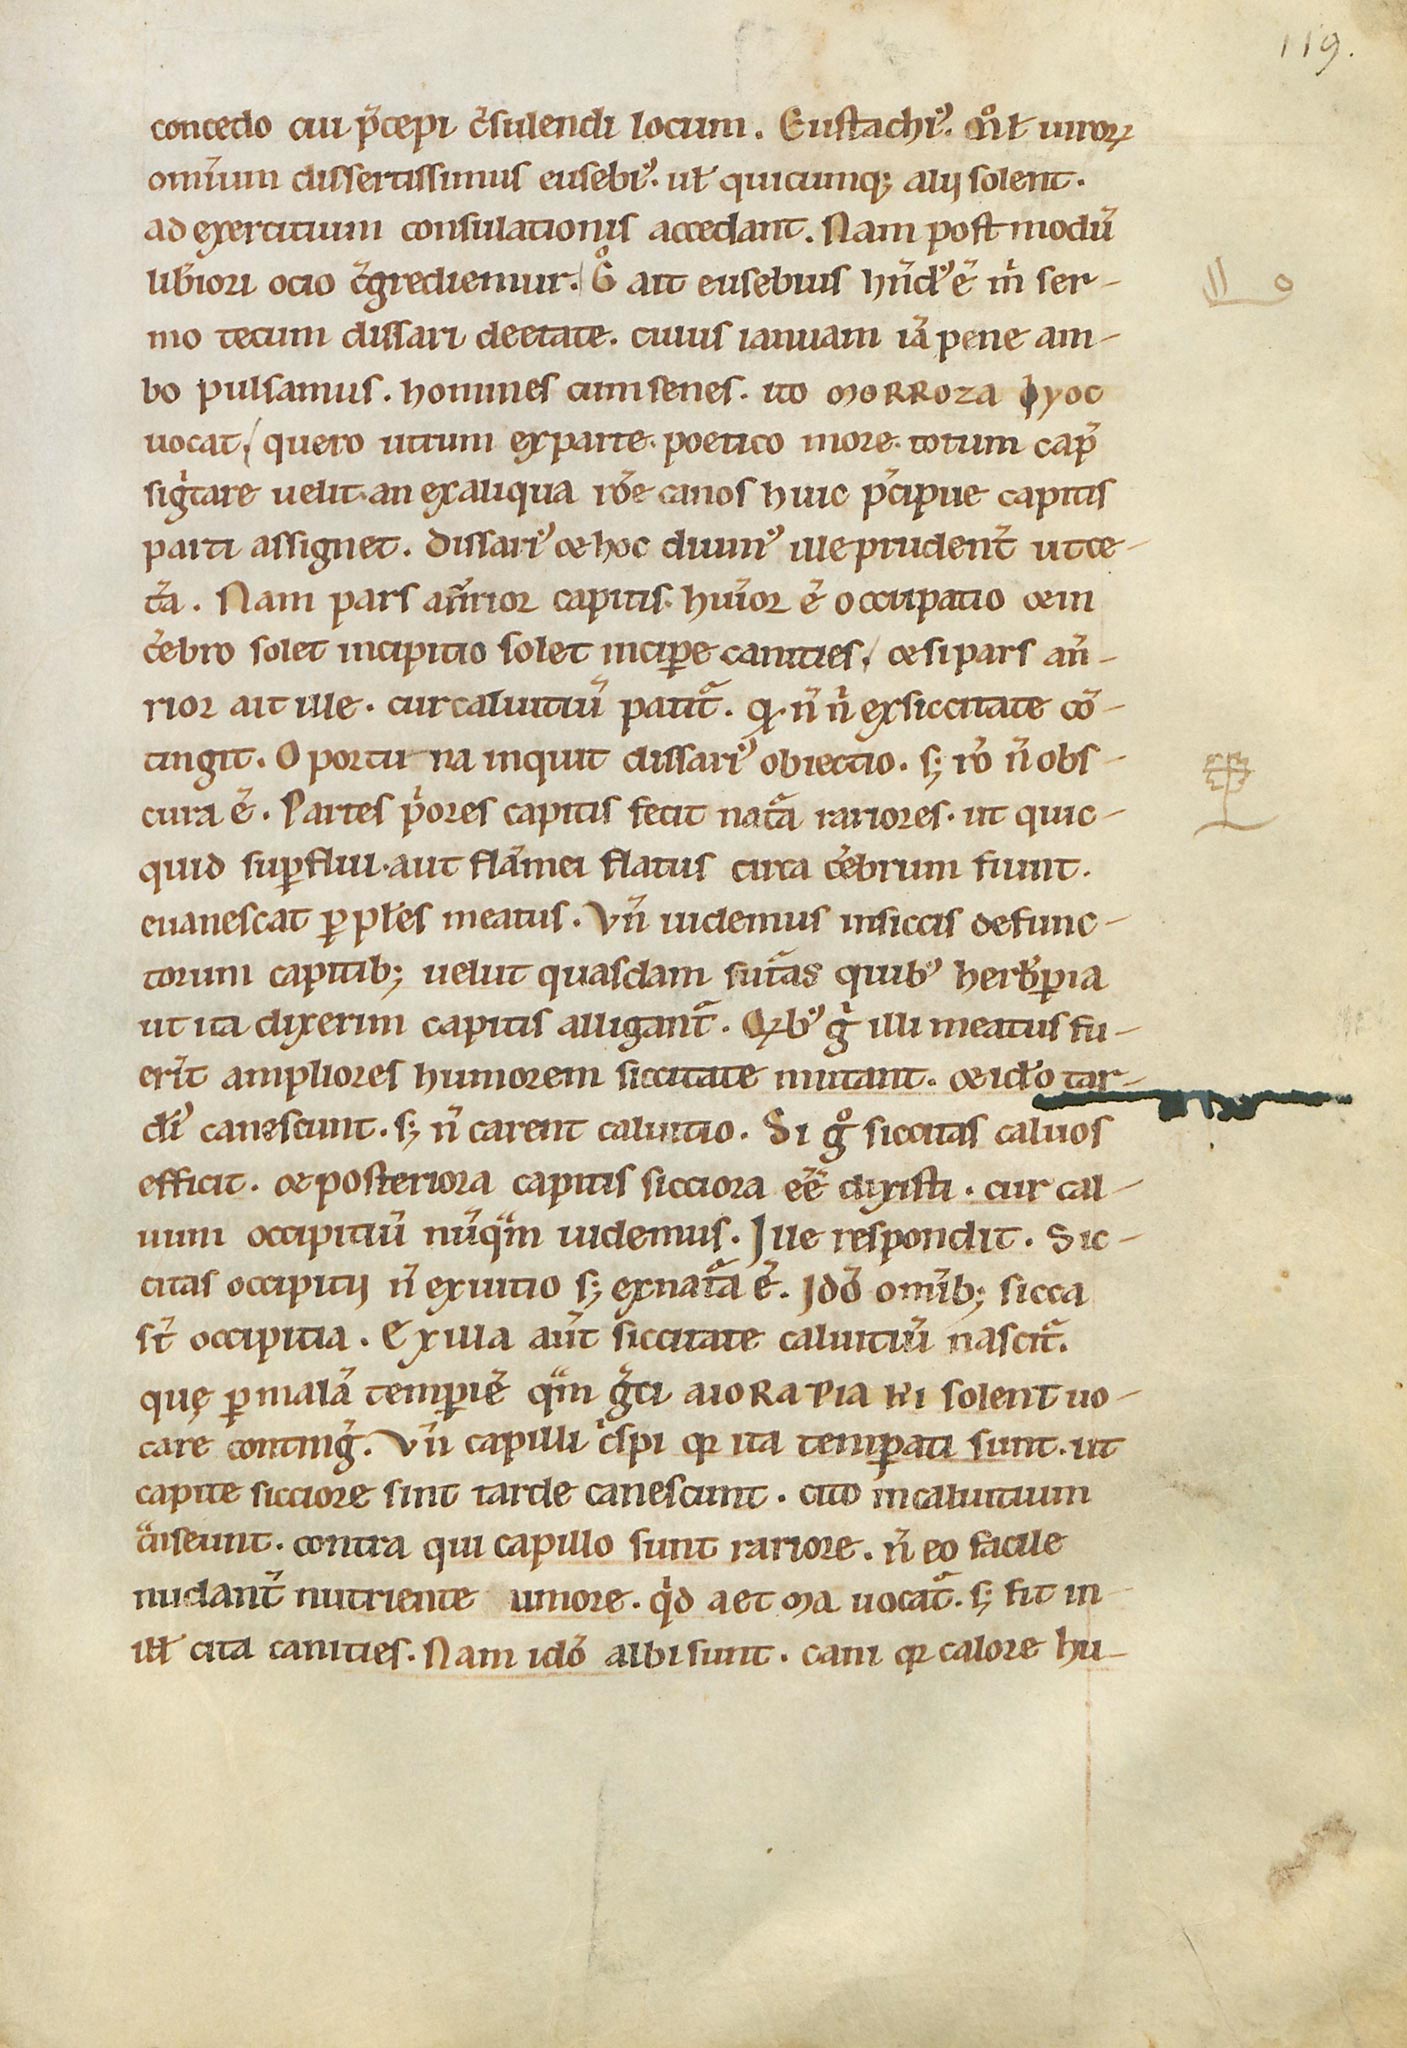 119.
concedo cui p̃cepi c̃sulendi locum. Eustachiꝰ. mͦł uiroꝝ
omĩum dissertissimus eusebiꝰ. uł quicumq; alij solent.
ad exertitium consulationis accedant. Nam post modũ
lib̃iori ocio c̃grediemur. Gͦ ait eusebius hñdꝰ ẽ m̃ ser-
mo tecum dissari deetate. cuius ianuam iã pene am-
bo pulsamus. homines cum senes. ito moRRoza ϕyoc
uocat, quero utrum exparte. poetico more. totum cap̃
sig̃tare uelit. an exaliqua rõe canos huic p̃cipue capitis
parti assignet. Dissariꝰ & hoc diuinꝰ ille prudent̃ ut ce-
t̃a. Nam pars añrior capitis. hũior ẽ occipatio & in
c̃ebro solet incipitio solet incip̃e canities, & si pars añ-
rior ait ille. cur caluitiũ patit᷑. q. ñ ñ exsiccitate cõ-
tingit. Oportu na inquit dissariꝰ obiectio. s; rõ ñ obs-
cura ẽ. Partes p̃ores capitis fecit nat᷑a rariores. ut quic-
quid sup̃flui. aut flãmei flatus circa c̃ebrum fiunt.
euanescat ꝑ płes meatus. Vñ uidemus insiccis defunc-
torum capitib; uelut quasdam sut᷑as quibꝰ herb̃ꝑia
ut ita dixerim capitis alligant᷑. Qꝛbꝰ g̃ illi meatus fu-
er̃t ampliores humorem siccitate mutant. & id̃o tar-
diꝰ canescunt. s; ñ carent caluitio. Si gͦ siccitas caluos
efficit. & posteriora capitis sicciora eẽ dixisti. cur cal-
uum occipitiũ nũq̃m uidemus. Ille respondit. Sic-
citas occipitij ñ exuitio s; exnat᷑a ẽ. Idõ omĩb; sicca
st̃ occipitia. Ex illa aũt siccitate caluitiũ nascit᷑.
quę ꝑ malã temꝑiẽ q̃m g̃ci aioRaPia ni solent uo-
care conting̃. Vñ capilli c̃spi qꝛ ita temꝑati sunt. ut
capite sicciore sint tarde canescunt. cito incaluitium
t̃nseunt. contra qui capillo sunt rariore. ñ eo facile
nudant᷑ nutriente umore. q̃d aet ma uocat᷑. s; fit in
ill̃ cita canities. Nam idõ albi sunt. cani qꝛ calore hu-